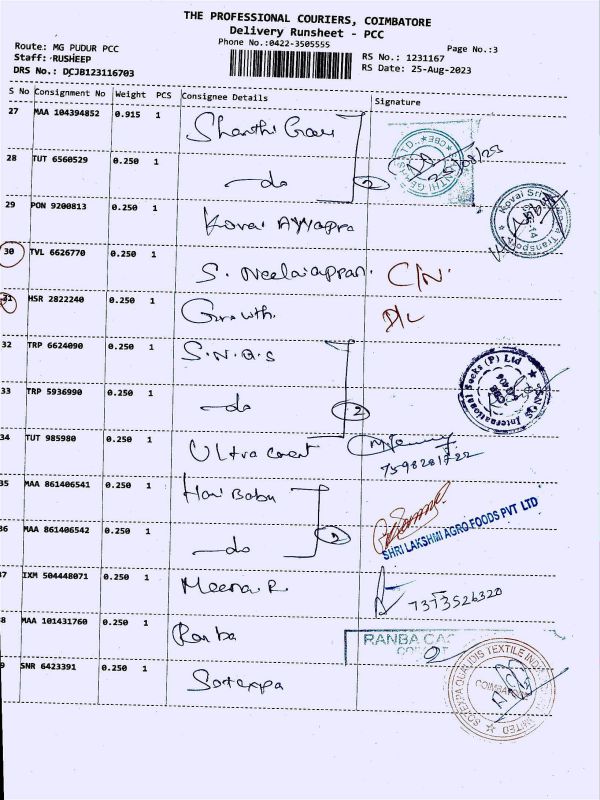 THE PROFESSIONAL COURIERS, COIMBATORE
Delivery Runsheet - PCC
Phone No.:0422-3505555
Page No.:3
Route: MG PUDUR PCC
Staff: RUSHEEP
DRS No.: DCJB123116703
RS No.: 1231167
RS Date: 25-Aug-2023
S No Consignment No Weight PCS Consignee Details Signature
27 MAA 104394852 0.915 1 Shanthi
28 TUT 6560529 0.250 1 do 2
25/08/23
29 PON 9200813 0.250 1 Kovai Ayyappa
Kovai Sri Transport
30 TVL 6626770 0.250 1 S. Neelaiappan. C/N.
31 HSR 2822240 0.250 1 Growth. D/L
32 TRP 6624090 0.250 1 S.N.Q.S
33 TRP 5936990 0.250 1 do 2
SNQS International Socks (P) Ltd
34 TUT 985980 0.250 1 Ultra
7598281722
35 MAA 861406541 0.250 1 Hari Babu
36 MAA 861406542 0.250 1 do 2
SHRI LAKSHMI AGRO FOODS PVT LTD
37 IXM 504448071 0.250 1 Meena.R 7373526320
38 MAA 101431760 0.250 1 Ranba
RANBA
39 SNR 6423391 0.250 1 Sotexpa
SOTEXPA QUALIDIS TEXTILE